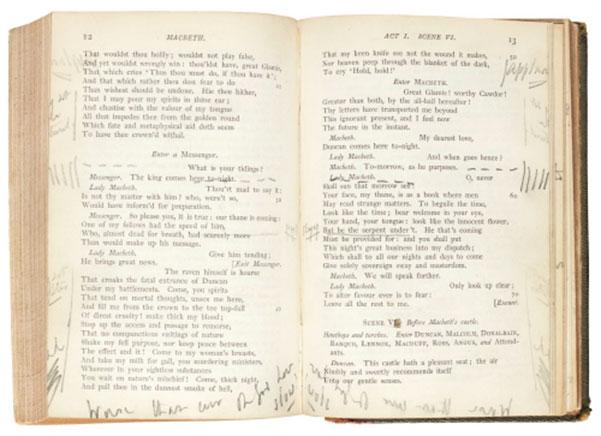 12 MACBETH.
That wouldst thou holily; wouldst not play false,
And yet wouldst wrongly win: thou'ldst have, great Glamis,
That which cries 'Thus thou must do, if thou have it';
And that which rather thou dost fear to do
Than wishest should be undone. Hie thee hither,
That I may pour my spirits in thine ear;
And chastise with the valour of my tongue
All that impedes thee from the golden round
Which fate and metaphysical aid doth seem
To have thee crown'd withal.
Enter a Messenger.
What is your tidings?
Messenger. The king comes here to-night.
Lady Macbeth. Thou'rt mad to say it:
Is not thy master with him? who, were't so,
Would have inform'd for preparation.
Messenger. So please you, it is true: our thane is coming:
One of my fellows had the speed of him,
Who, almost dead for breath, had scarcely more
Than would make up his message.
Lady Macbeth. Give him tending;
He brings great news. [Exit Messenger.
The raven himself is hoarse
That croaks the fatal entrance of Duncan
Under my battlements. Come, you spirits
That tend on mortal thoughts, unsex me here,
And fill me from the crown to the toe top-full
Of direst cruelty! make thick my blood;
Stop up the access and passage to remorse,
That no compunctious visitings of nature
Shake my fell purpose, nor keep peace between
The effect and it! Come to my woman's breasts,
And take my milk for gall, you murdering ministers,
Wherever in your sightless substances
You wait on nature's mischief! Come, thick night,
And pall thee in the dunnest smoke of hell,
ACT I. SCENE VI. 13
That my keen knife see not the wound it makes,
Nor heaven peep through the blanket of the dark,
To cry 'Hold, hold!'
Enter MACBETH.
Great Glamis! worthy Cawdor!
Greater than both, by the all-hail hereafter!
Thy letters have transported me beyond
This ignorant present, and I feel now
The future in the instant.
Macbeth. My dearest love,
Duncan comes here to-night.
Lady Macbeth. And when goes hence?
Macbeth. To-morrow, as he purposes.
Lady Macbeth. O, never
Shall sun that morrow see!
Your face, my thane, is as a book where men 60
May read strange matters. To beguile the time,
Look like the time; bear welcome in your eye,
Your hand, your tongue: look like the innocent flower,
But be the serpent under't. He that's coming
Must be provided for: and you shall put
This night's great business into my dispatch;
Which shall to all our nights and days to come
Give solely sovereign sway and masterdom.
Macbeth. We will speak further.
Lady Macbeth. Only look up clear;
To alter favour ever is to fear: 70
Leave all the rest to me. [Exeunt.
SCENE VI. Before Macbeth's castle.
Hautboys and torches. Enter DUNCAN, MALCOLM, DONALBAIN,
BANQUO, LENNOX, MACDUFF, ROSS, ANGUS, and Attend-
ants.
Duncan. This castle hath a pleasant seat; the air
Nimbly and sweetly recommends itself
Unto our gentle senses.